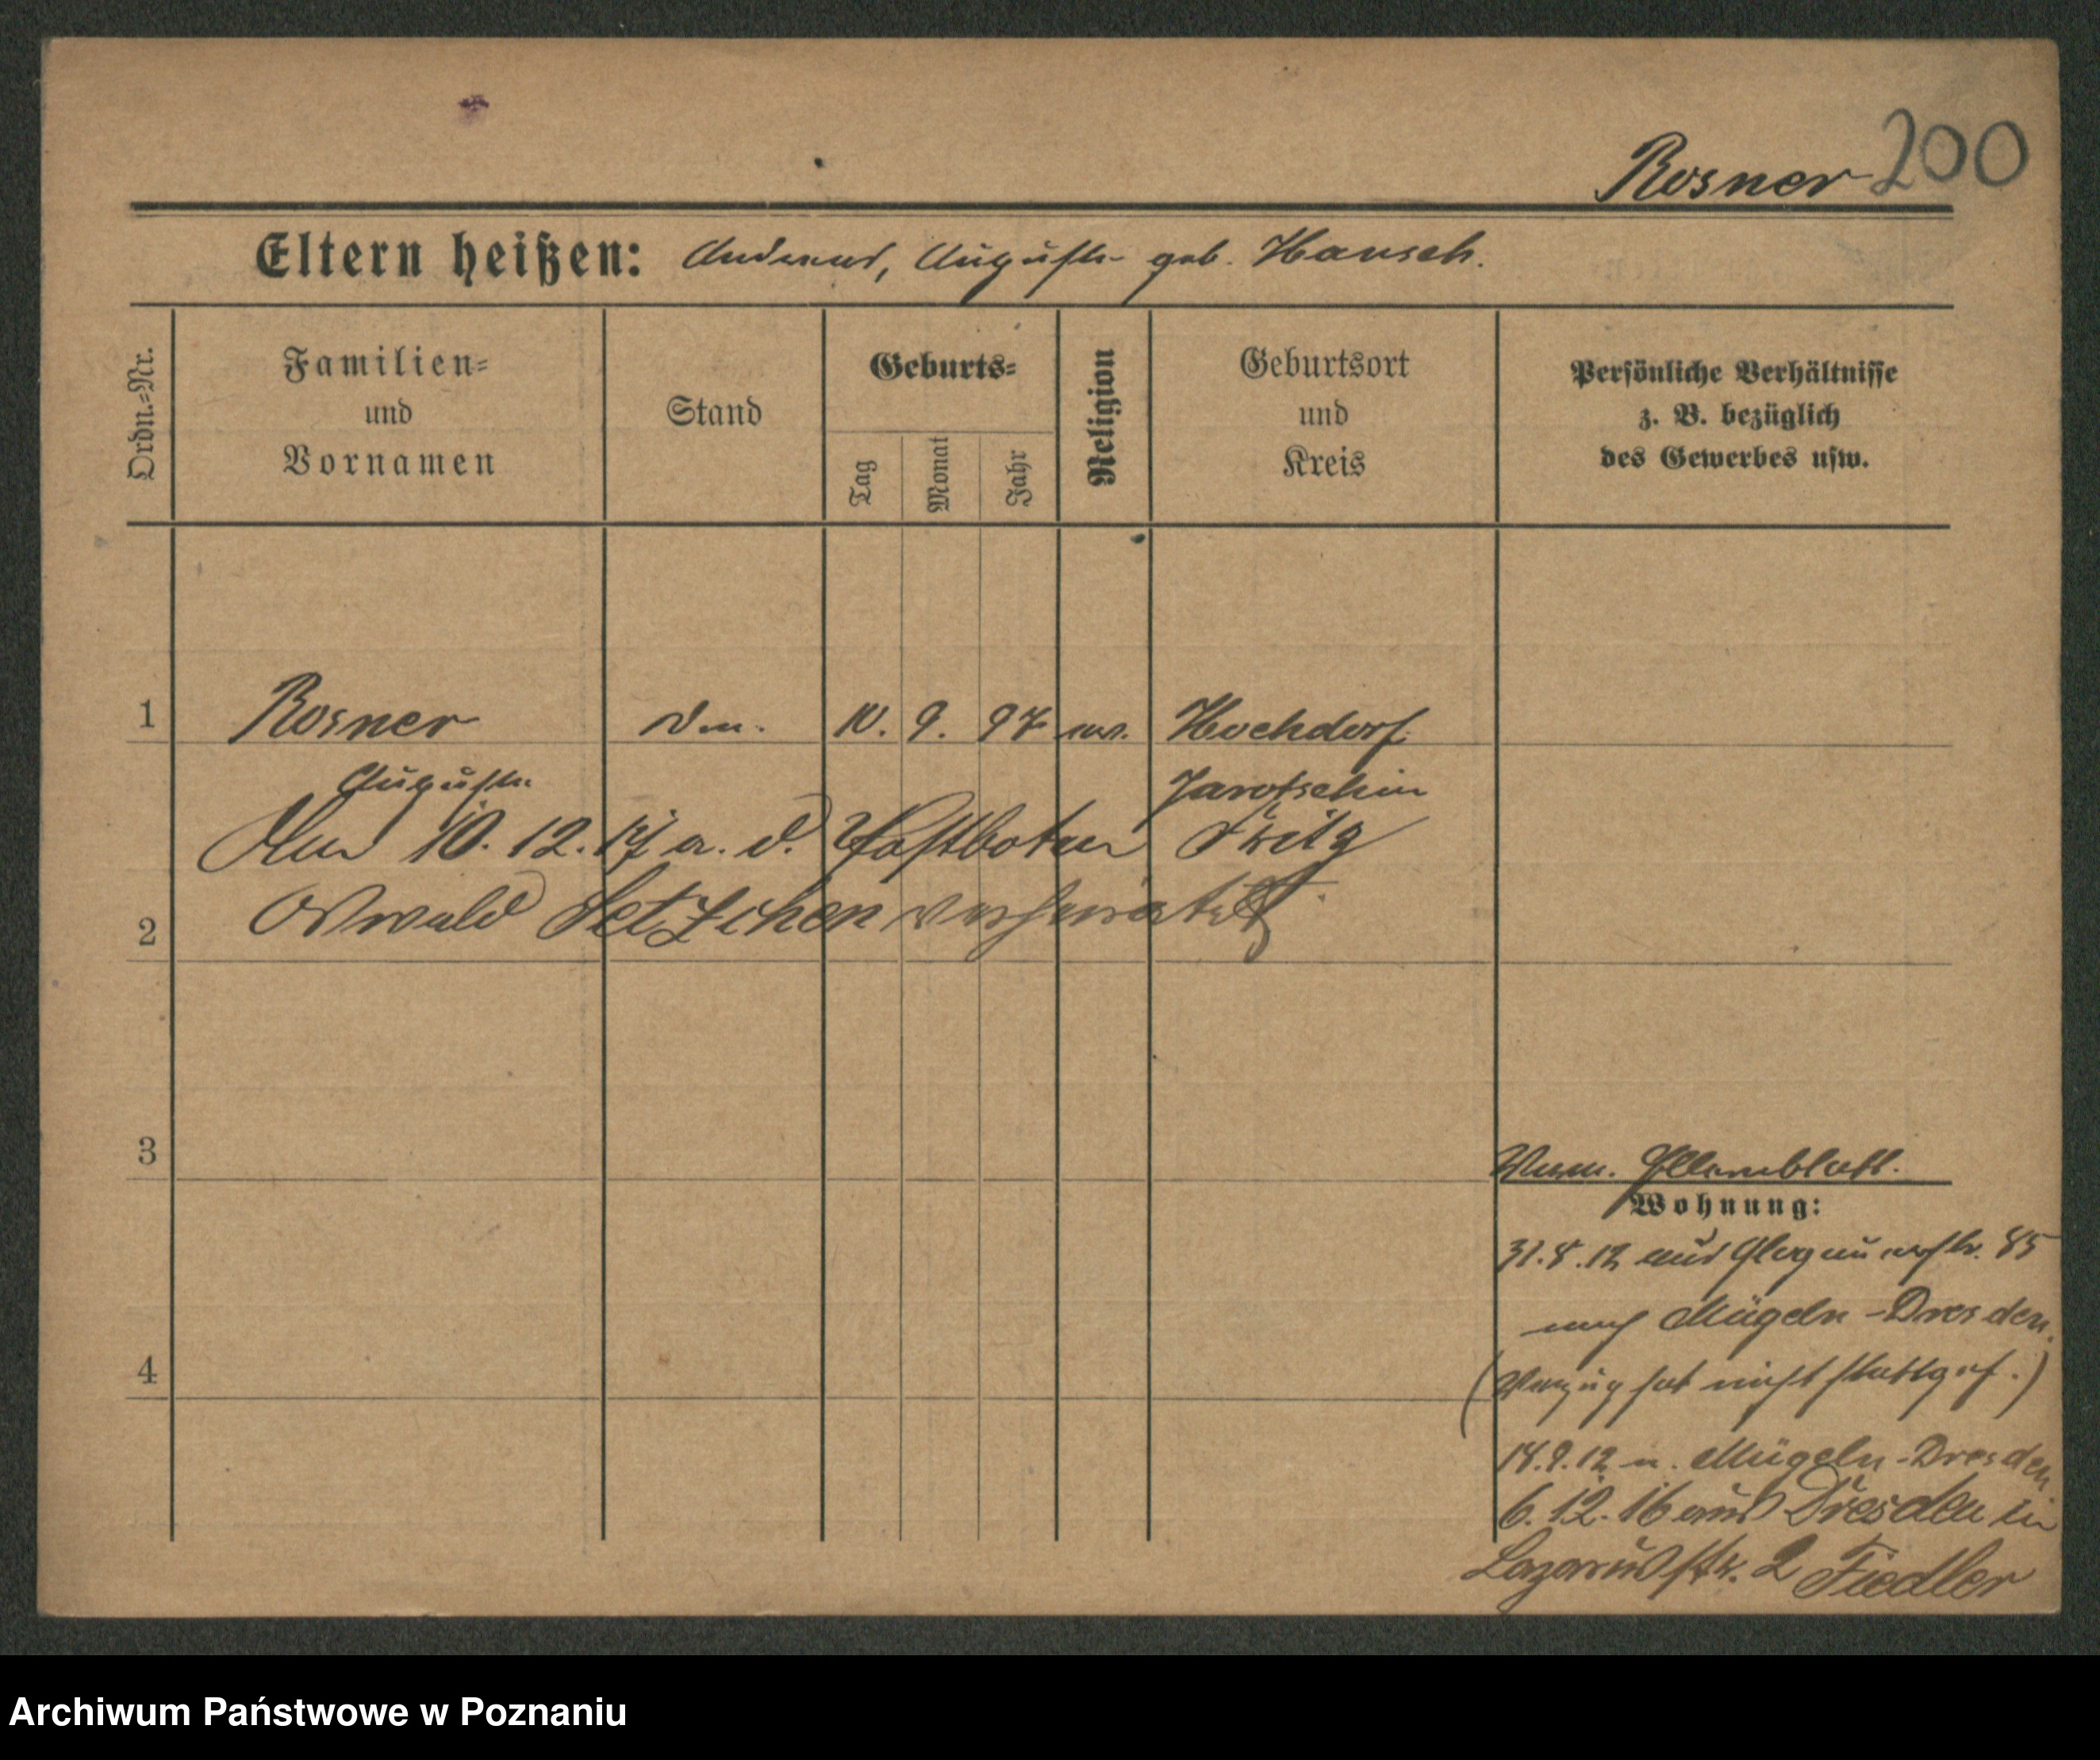 Rosner 200
Eltern heißen: Andreas, Auguste geb. Hansch.
Ordn.-Nr.
Familien-
und
Vornamen
Stand
Geburts-
Tag
Monat
Jahr
Religion
Geburtsort
und
Kreis
Persönliche Verhältnisse
z. B. bezüglich
des Gewerbes usw.
1 Rosner 10. 9. 97 ev. Hochdorf
Auguste Jarotschin
Am 10.12.17 a. d. Postboten Fritz
2 Oswald verheiratet
3
Elternblatt.
Wohnung:
31.8.12 aus Glogauerstr. 85
nach Mügeln-Dresden.
4
(Verzug hat nicht stattgef.)
18.9.12 n. Mügeln-Dresden
6.12.16 aus Dresden in
Lazarusstr. 2 Fiedler
Archiwum Państwowe w Poznaniu